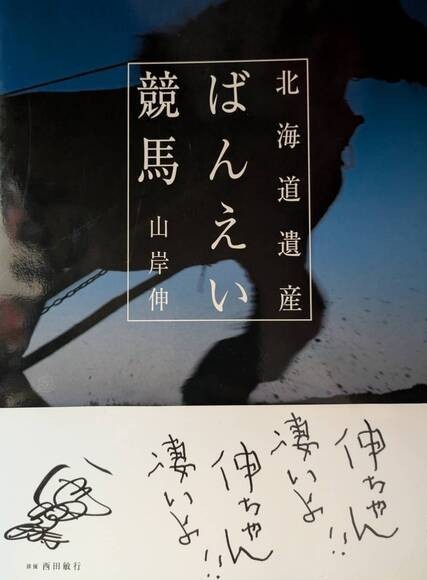 北海道遺産
ばんえい
競馬
山岸伸
伸ちゃん
凄いよ!!
伸ちゃん
凄いよ!!
俳優 西田敏行